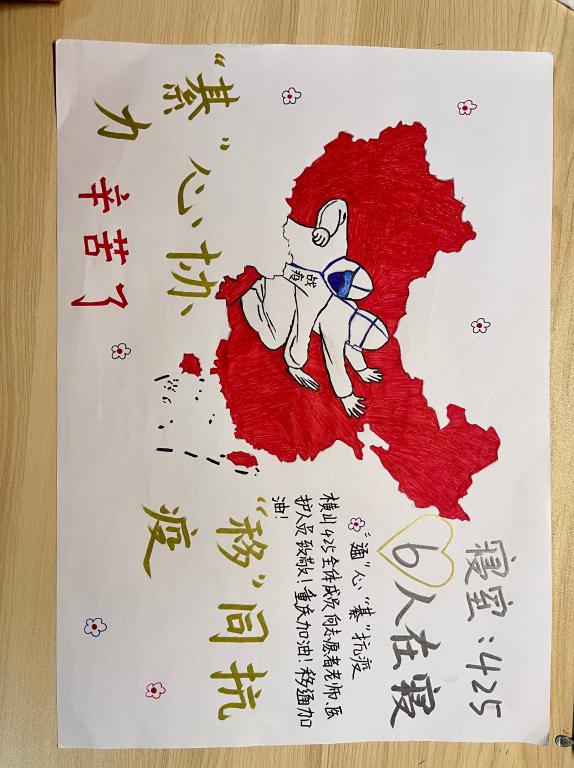 寝室:425
6人在寝
"通"心"綦"抗疫
横山425全体成员向志愿者老师、医
护人员致敬!重庆加油!移通加
油!
战疫
"綦"心协
力
"移"同抗
疫
辛苦了